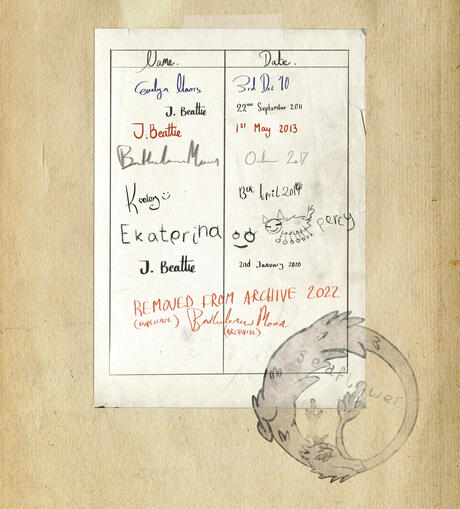 Name. Date.
Evelyn Moors 3rd Dec '10
J. Beattie 22nd September 2011
J. Beattie 1st May 2013
Bartholomew Moon 2017
Keeley 13th April 2019
Ekaterina percy
J. Beattie 2nd January 2020
REMOVED FROM ARCHIVE 2022
(DUPLICATE) Bartholomew Moon
(ARCHIVIST)
seaflower